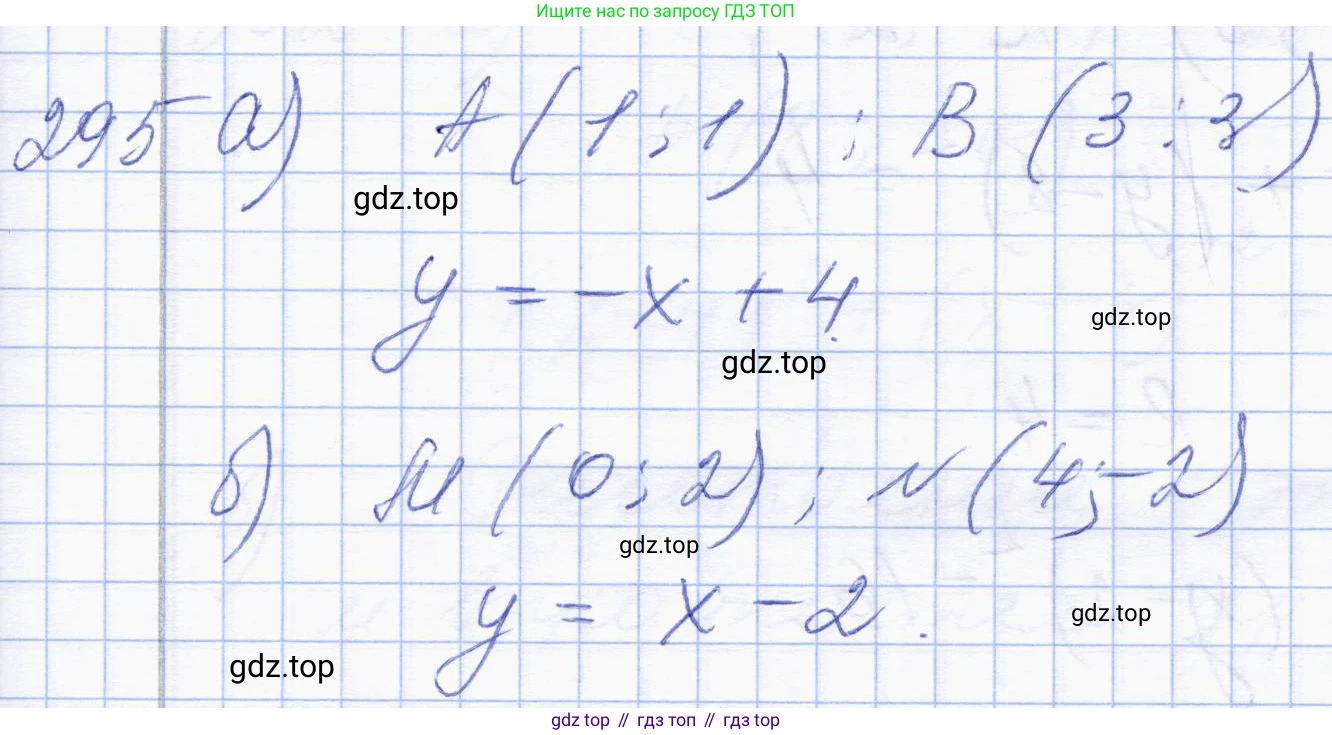 Ищите нас по запросу ГДЗ ТОП
295 а) A (1; 1) ; B (3; 3)
gdz.top
y = -x + 4.
gdz.top
gdz.top
б) M (0; 2) ; N (4; -2)
gdz.top
y = x - 2.
gdz.top
gdz.top
gdz top // гдз топ // гдз top